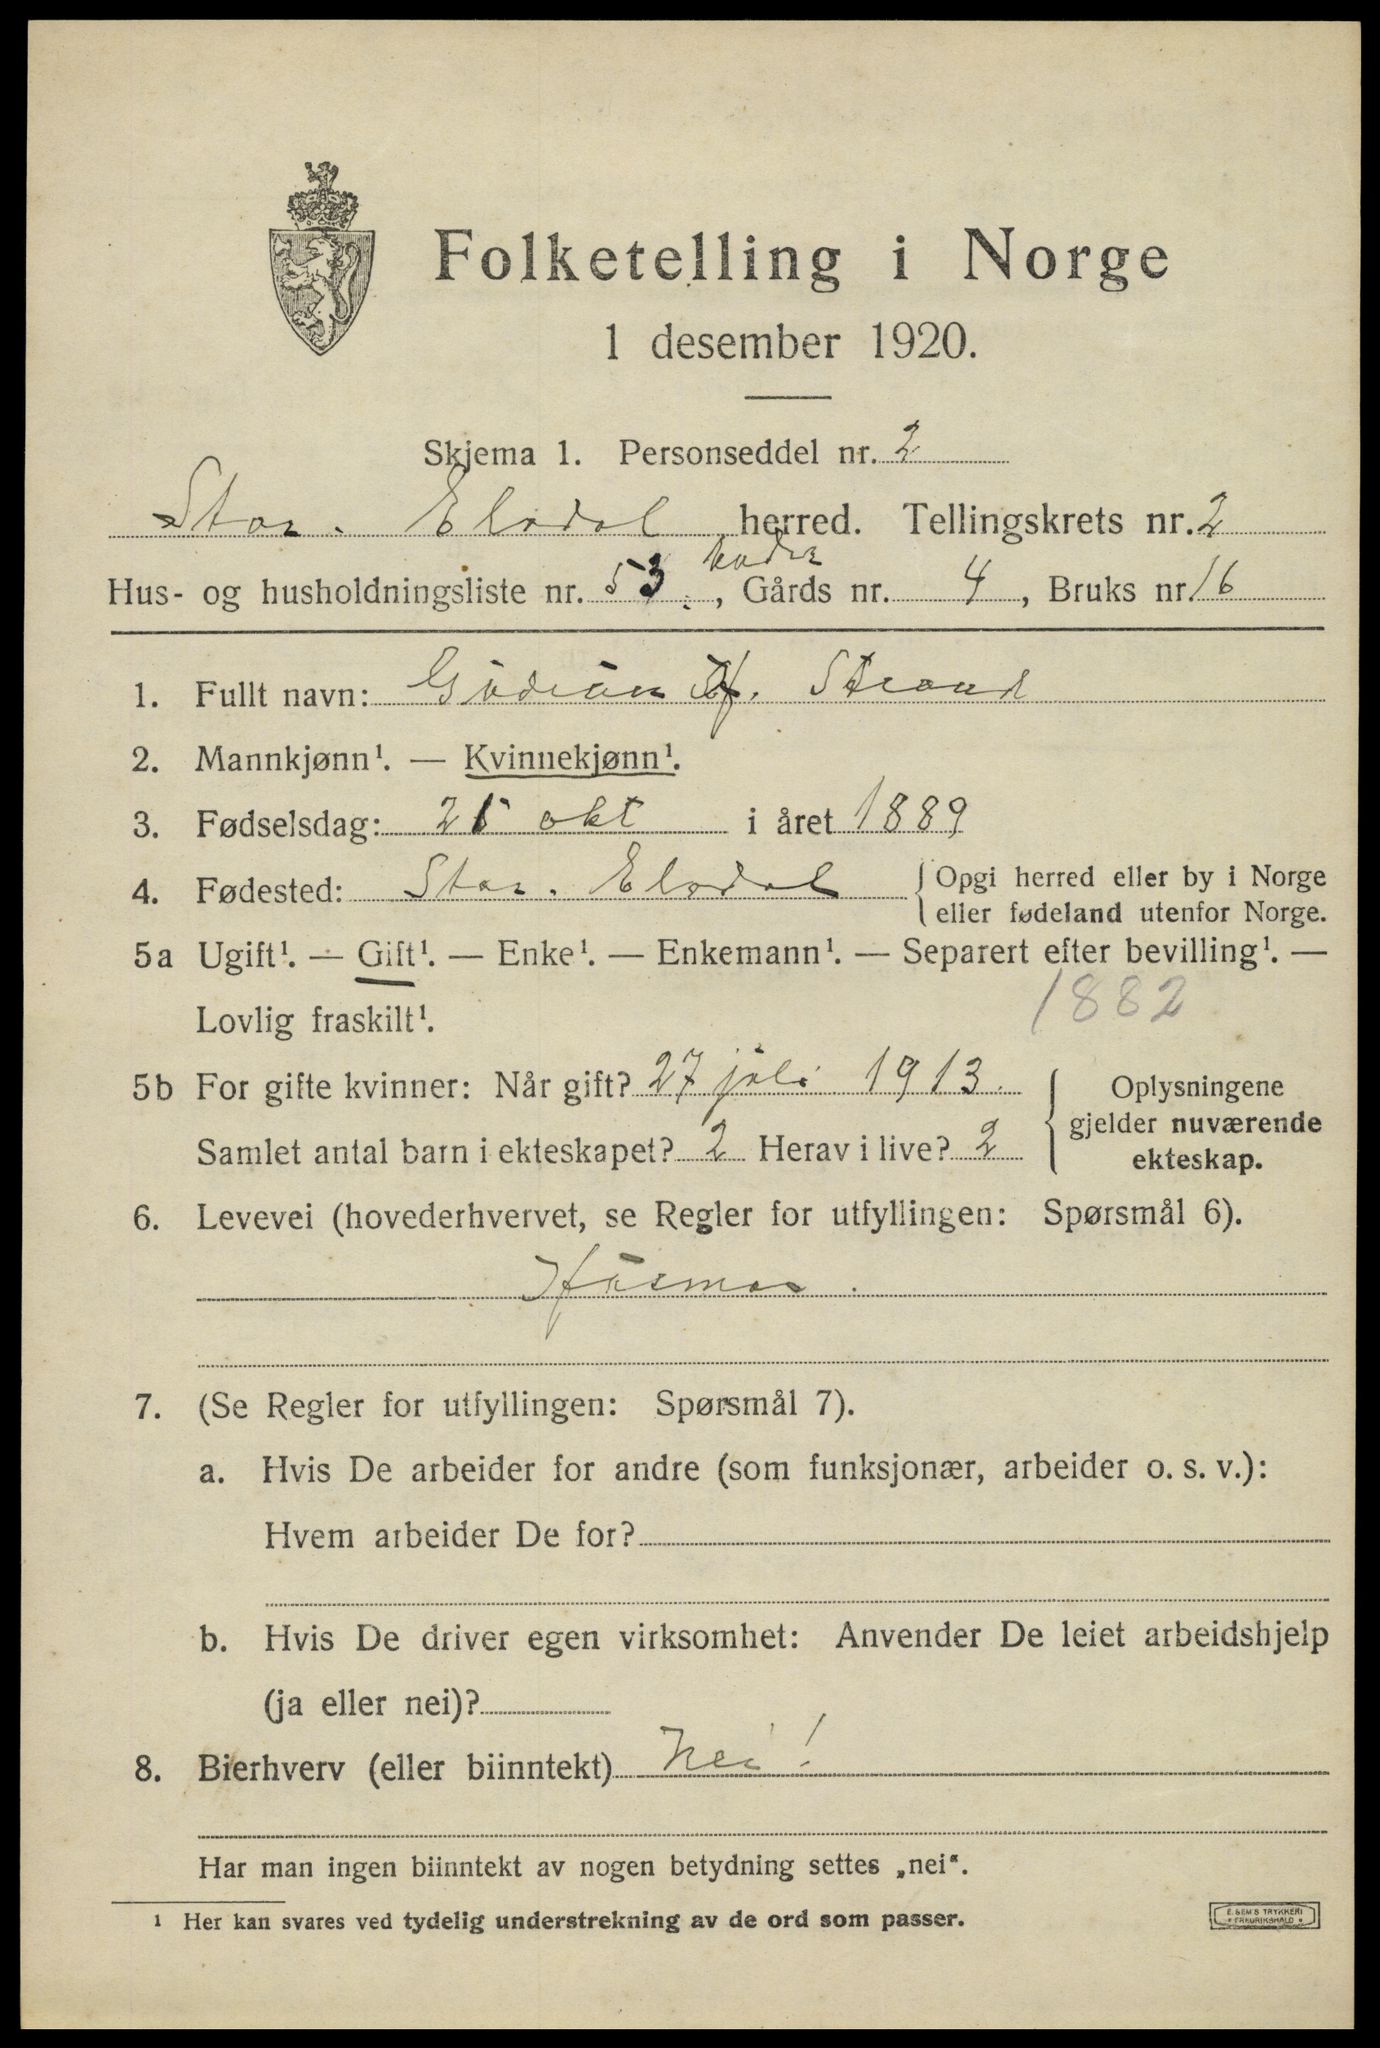 Folketelling i Norge
1 desember 1920.
Skjema 1. Personseddel nr. 2
Stor. Elvdal herred. Tellingskrets nr. 2
Hus- og husholdningsliste nr. 53. , Gårds nr. 4 , Bruks nr 16
1. Fullt navn: Strand
2. Mannkjønn¹. — Kvinnekjønn¹.
3. Fødselsdag: 21 okt i året 1889
4. Fødested: Stor. Elvdal { Opgi herred eller by i Norge
eller fødeland utenfor Norge.
5a Ugift¹. — Gift¹. — Enke¹. — Enkemann¹. — Separert efter bevilling¹. —
Lovlig fraskilt¹. 1882
5b For gifte kvinner: Når gift? 27 juli 1913. { Oplysningene
gjelder nuværende
Samlet antal barn i ekteskapet? 2 Herav i live? 2 ekteskap.
6. Levevei (hovederhvervet, se Regler for utfyllingen: Spørsmål 6).
Husmor.
7. (Se Regler for utfyllingen: Spørsmål 7).
a. Hvis De arbeider for andre (som funksjonær, arbeider o. s. v.):
Hvem arbeider De for?
b. Hvis De driver egen virksomhet: Anvender De leiet arbeidshjelp
(ja eller nei)?
8. Bierhverv (eller biinntekt) Nei!
Har man ingen biinntekt av nogen betydning settes „nei“.
¹ Her kan svares ved tydelig understrekning av de ord som passer.
E. SEM'S TRYKKERI
FREDRIKSHALD